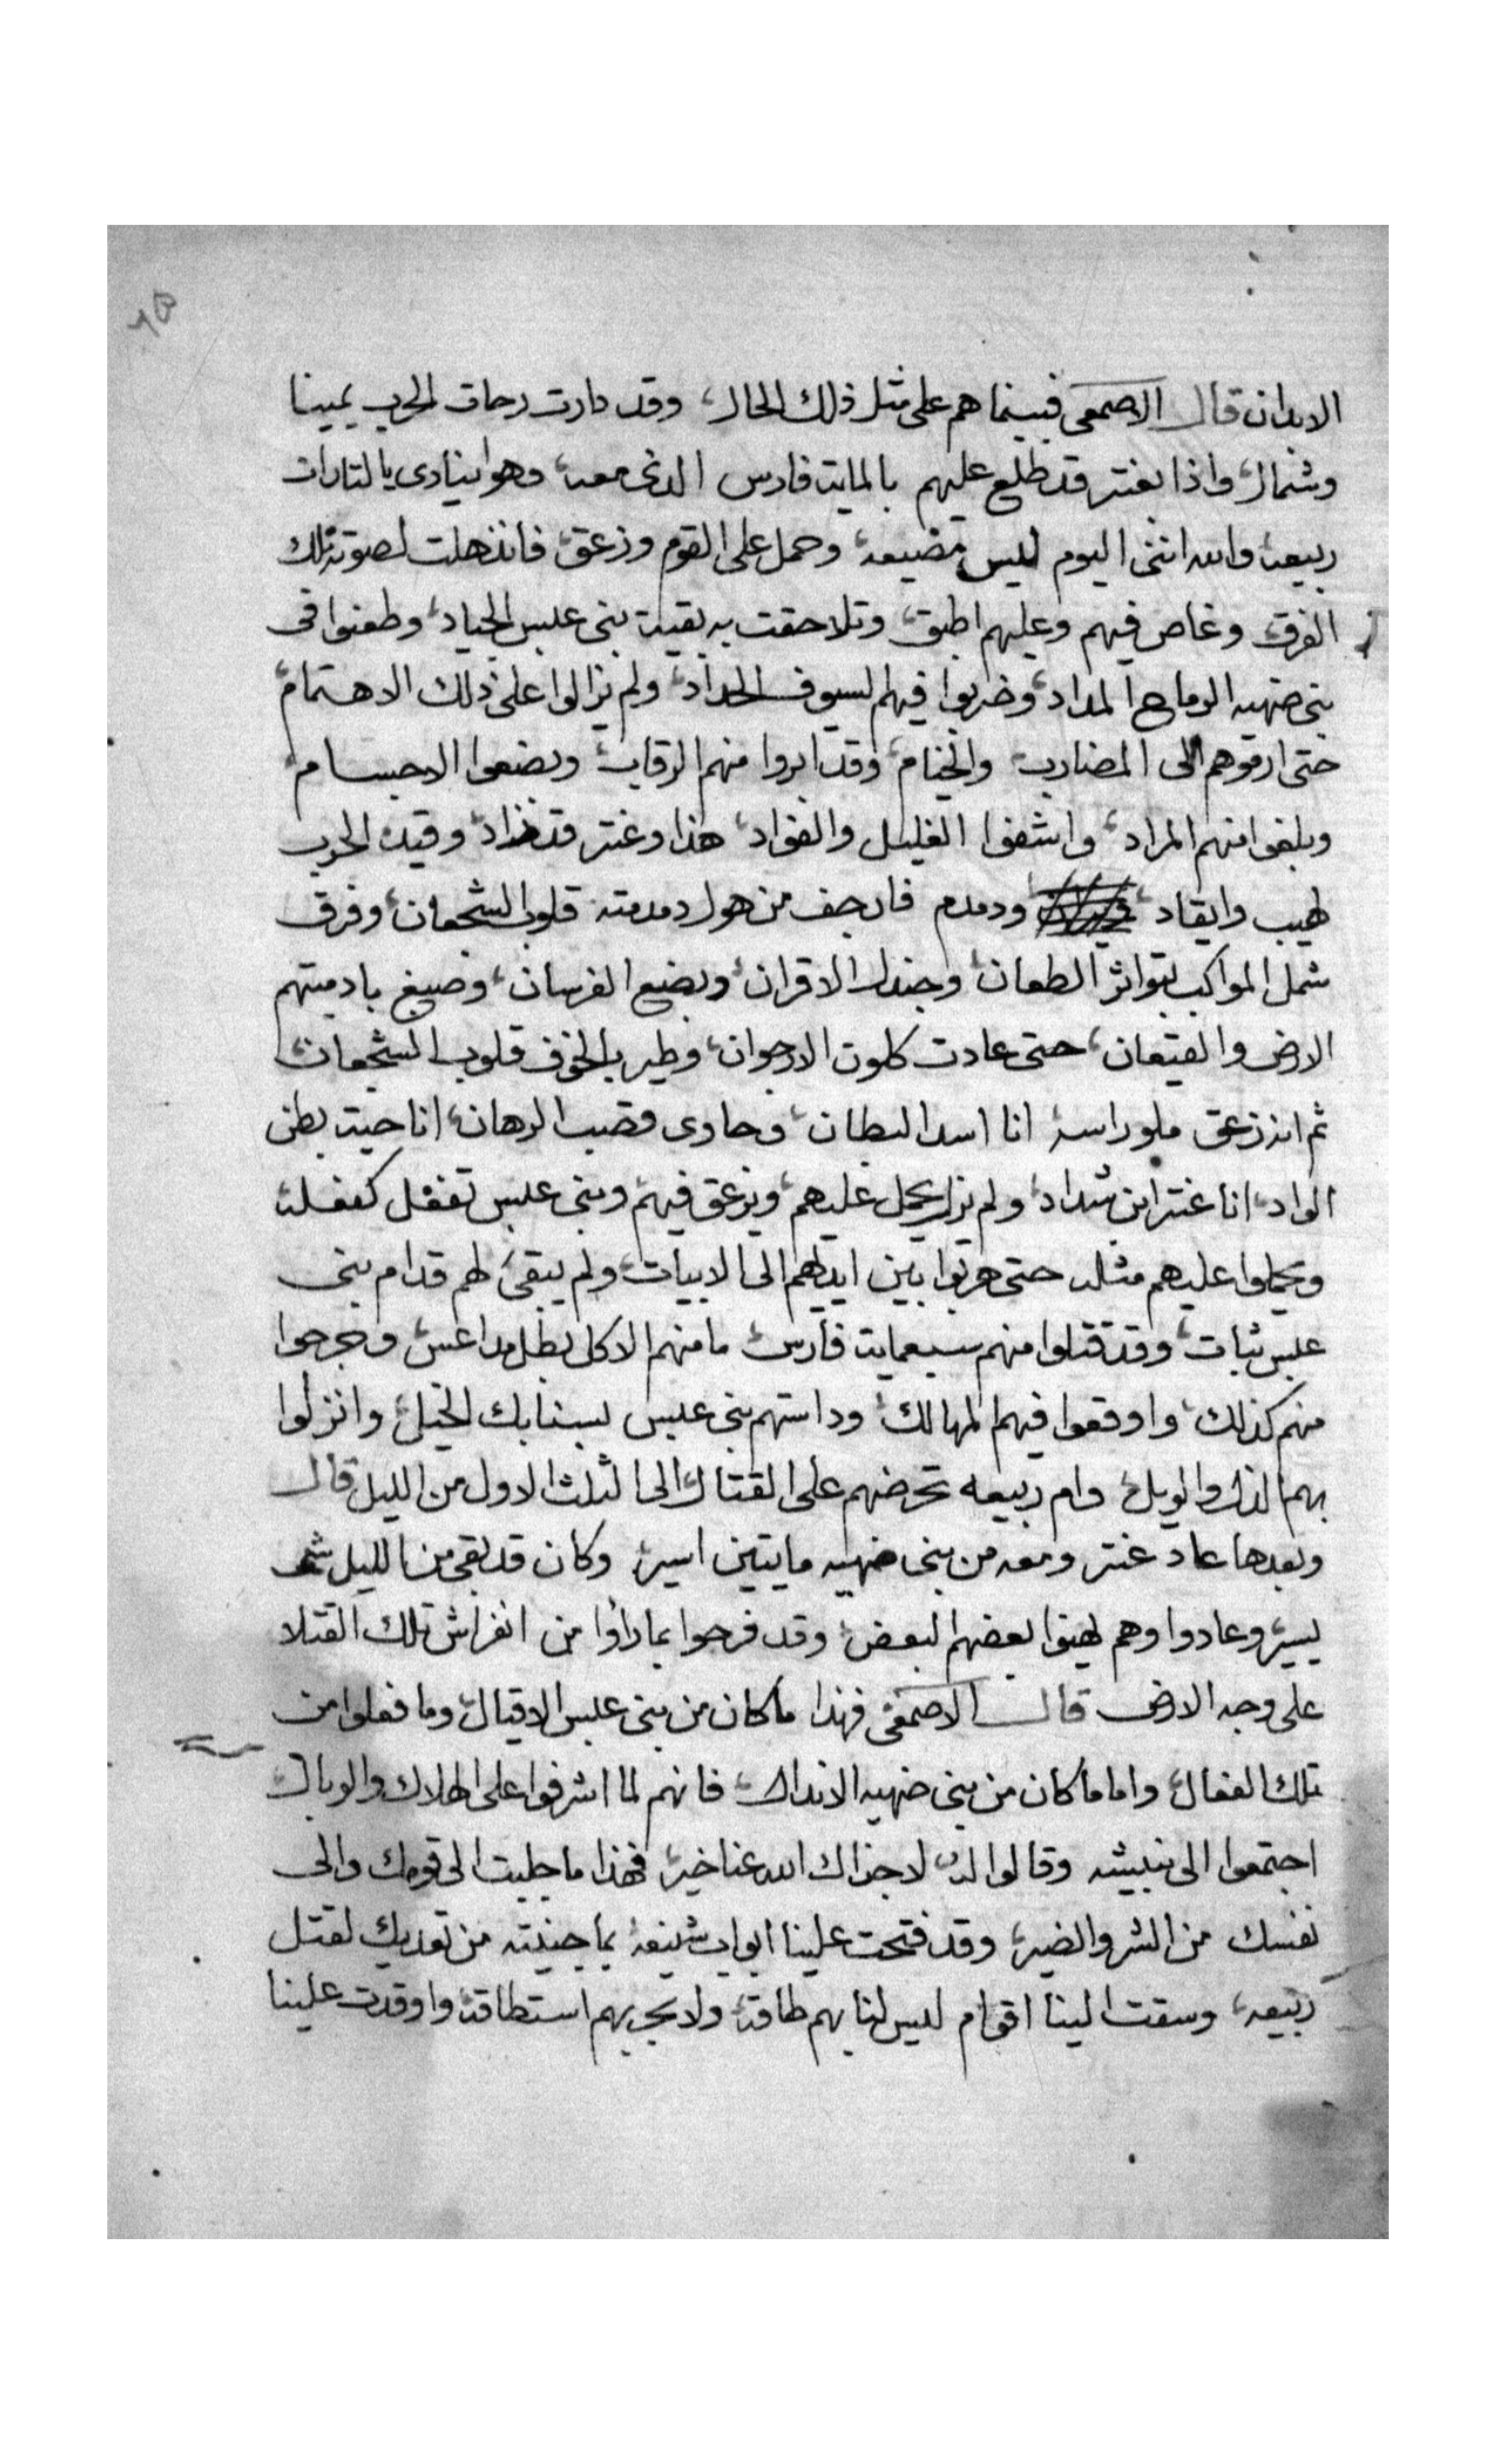 الابدان قال الاصمعى فبينما هم على مثل ذلك الحال، وقد دارت رحات الحرب يمينا
وشمال، واذا بعنتر قد طلع عليهم بالماية فارس الذى معه، وهو اينادى يالتارات
ربيعه والله اننى اليوم ليس مضيعه، وحمل على القوم وزعق، فانذهلت لصوته تلك
الفرق، وغاص فيهم وعليهم اطبق، وتلاحقت به بقية بنى عبس الجياد، وطعنوا فى
بنى ضهيه الرماح المداد، وضربوا فيهم لسيوف الحداد، ولم يزالوا على ذلك الاهتمام
حتى ارموهم الى المضارب والخيام، وقد ابروا منهم الرقاب، وبضعوا الاجسام
وبلغوا منهم المراد، واشفوا الغليل والفواد، هذا وعنتر قد زاد، وقيد الحرب
لهيب وايقاد، ودمدم فارجف من هول دمدمته قلوب الشجعان، وفرق
شمل المواكب بتواتر الطعان، وجندل الاقران، وبضع الفرسان، وصبغ بادميتهم
الارض والقيعان، حتى عادت كلون الارجوان، وطير بالخوف قلوب الشجعان
ثم انه زعق ملو راسه انا اسد البطان، وحاوى قصب الرهان، انا حية بطن
الواد، انا عنتر ابن شداد، ولم يزل يحمل عليهم، ويزعق فيهم، وبنى عبس تفعل كفعله
ويحملوا عليهم مثله حتى هربوا بين ايديهم الى الابيات، ولم يبقى لهم قدام بنى
عبس ثبات، وقد قتلوا منهم سبعماية فارس، ما منهم الا كل بطل مداعس، وجرحوا
منهم كذلك، واوقعوا فيهم المهالك، وداستهم بنى عبس بسنابك الخيل، وانزلوا
بهم الذل والويل، وام ربيعه تحرضهم على القتال الى الثلث الاول من الليل قال
وبعدها عاد عنتر ومعه من بنى ضهيه مايتين اسير، وكان قد بقى من الليل شى
يسير، وعادوا وهم يهنوا بعضهم البعض، وقد فرحوا بما راوا من انفراش تلك القتلا
على وجه الارض قال الاصمعى فهذا ما كان من بنى عبس الاقيال، وما فعلوا من
تلك الفعال، واما ما كان من بنى ضهيه الاندال، فانهم لما اشرفوا على الهلاك والوبال
اجتمعوا الى نبيشه وقالوا له لا جزاك الله عنا خير، فهذا ما جلبت الى قومك والى
نفسك من الشر والضير، وقد فتحت علينا ابواب شنيعه بما جنيته من تعديك لقتل
ربيعه، وسقت الينا اقوام ليس لنا بهم طاقه ولا بحربهم استطاقه واوقدت علينا